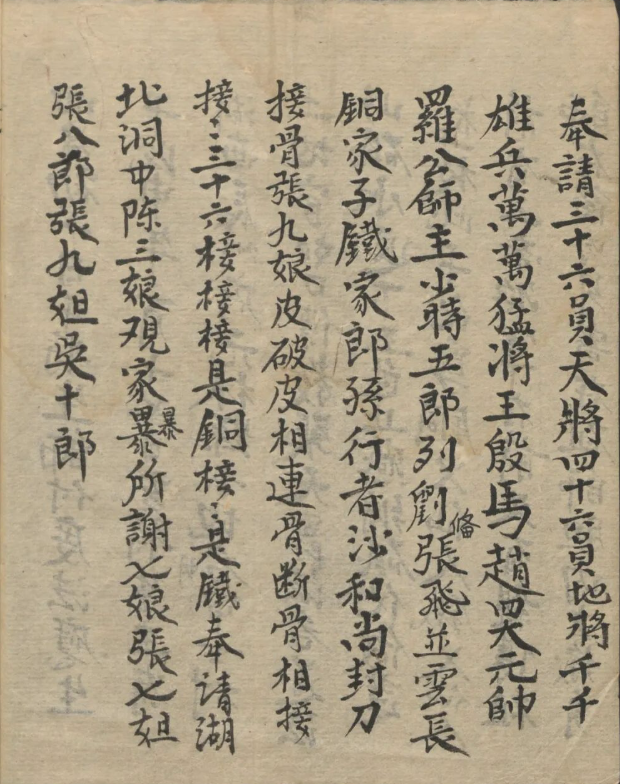 奉請三十六員天將四十六員地將千千
雄兵萬萬猛将王殷馬趙四大元帥
羅公師主少時五郎列劉備張飛並雲長
銅家子鐵家郎孫行者沙和尚封刀
接骨張九娘皮破皮相連骨断骨相接
接〻三十六接接接是銅接〻是鐵奉请湖
北洞中陈三娘覌家暴暴所謝七娘張七姐
張八郎張九姐吳十郎